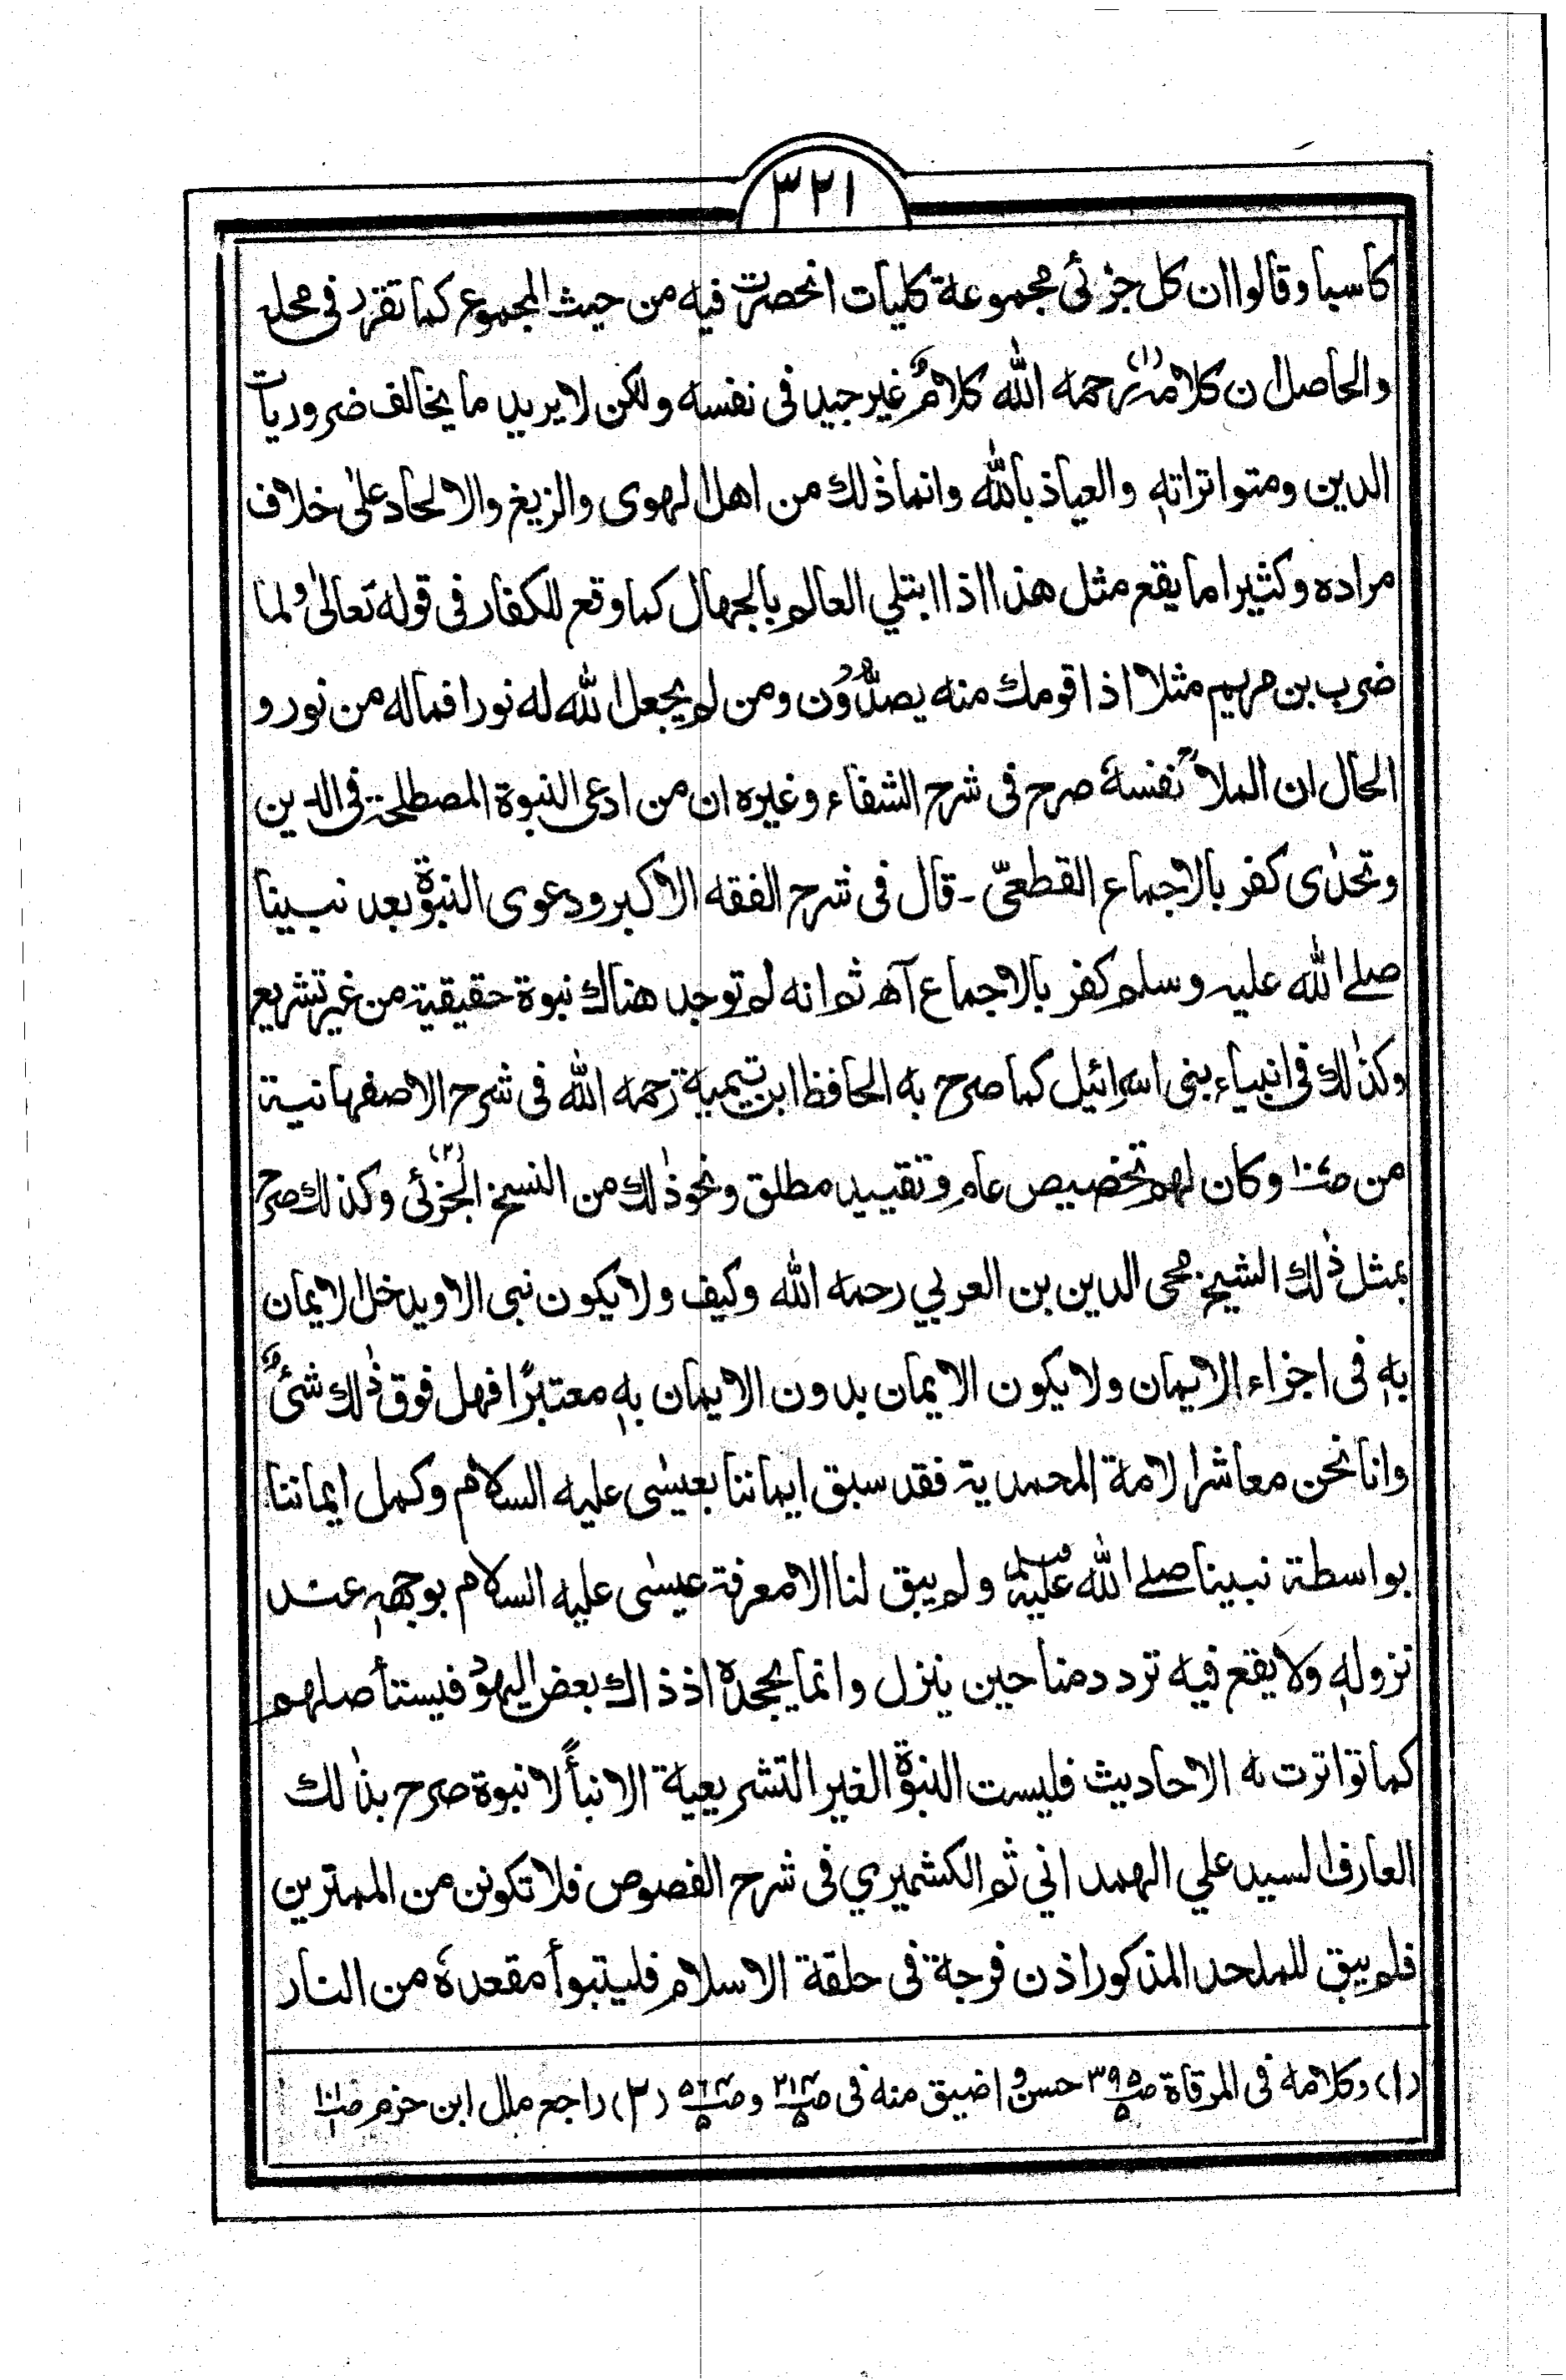 ٣٢١
كاسبا وقالوا ان كل جزئى مجموعة كليات انحصرت فيه من حيث المجموع كما تقرر فى محله
والحاصل ان كلامه(١) رحمه الله كلامٌ غير جيد فى نفسه ولكن لا يريد ما يخالف ضروريات
الدين ومتواتراته والعياذ بالله وانما ذٰلك من اهل الهوى والزيغ والالحاد علىٰ خلاف
مراده وكثيرا ما يقع مثل هذا اذا ابتلي العالم بالجهال كما وقع للكفار فى قوله تعالىٰ ولما
ضرب بن مريم مثلا اذا قومك منه يصدُّوْن ومن لم يجعل الله له نورا فماله من نور و
الحال ان الملا نفسهٗ صرح فى شرح الشفاء وغيره ان من ادعى النبوة المصطلحة فى الدين
وتحدٰى كفر بالاجماع القطعىّ - قال فى شرح الفقه الاكبر ودعوى النبوة بعد نبينا
صلے الله عليه وسلم كفر بالاجماع آھ ثم انه لم توجد هناك نبوة حقيقية من غير تشريع
وكذٰلك فى انبياء بنى اسرائيل كما صرح به الحافظ ابن تيمية رحمه الله فى شرح الاصفهانية
من صـ وكان لهم تخصيص عام وتقييد مطلق ونحو ذٰلك من النسخ الجزئى(٢) وكذلك صرح
بمثل ذٰلك الشيخ محى الدين بن العربي رحمه الله وكيف ولا يكون نبى الا ويدخل الايمان
بهٖ فى اجزاء الايمان ولا يكون الايمان بدون الايمان بهٖ معتبرًا فهل فوق ذٰلك شئٌ
وانا نحن معاشر الامة المحمدية فقد سبق ايماننا بعيسٰى عليه السلام وكمل ايماننا
بواسطة نبينا صلے الله عليه وسلم ولم يبق لنا الا معرفة عيسٰى عليه السلام بوجههٖ عند
نزولهٖ ولا يقع فيه تردد منا حين ينزل وانما يجحده اذ ذاك بعض اليهود فيستأصلهم
كما تواترت به الاحاديث فليست النبوة الغير التشريعية الا نبأً لا نبوة صرح بذٰلك
العارف السيد علي الهمداني ثم الكشميري فى شرح الفصوص فلا تكونن من الممترين
فلم يبق للملحد المذكور اذن فرجة فى حلقة الاسلام فليتبوأ مقعدهٗ من النار
(١) وكلامه فى المرقاة صـ٣٩٥/٥ حسن واضيق منه فى صـ وصـ (٢) راجع ملل ابن حزم صـ